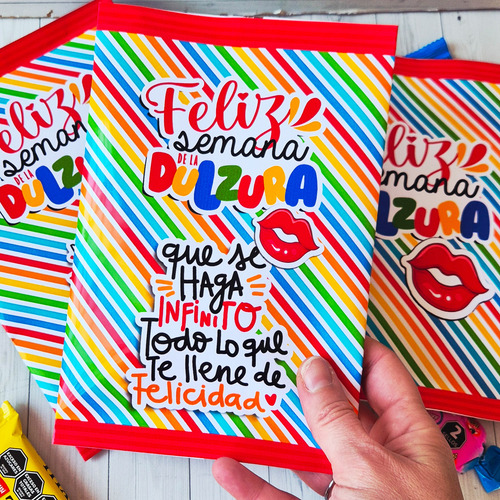 Feliz
semana
DE LA
DULZURA
que se
HAGA
INFINITO
Todo Lo que
Te llene de
Felicidad
Feliz
semana
DE LA
DULZURA
eliz
emana
LZURA
2